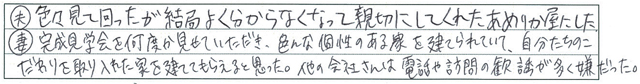 夫 色々見て回ったが結局よく分からなくなって親切にしてくれたあめりか屋にした。
妻 完成見学会を何度か見せていただき、色んな個性のある家を建てられていて、自分たちのこ
だわりを取り入れた家を建ててもらえると思った。他の会社さんは電話や訪問の歓談が多く嫌だった。